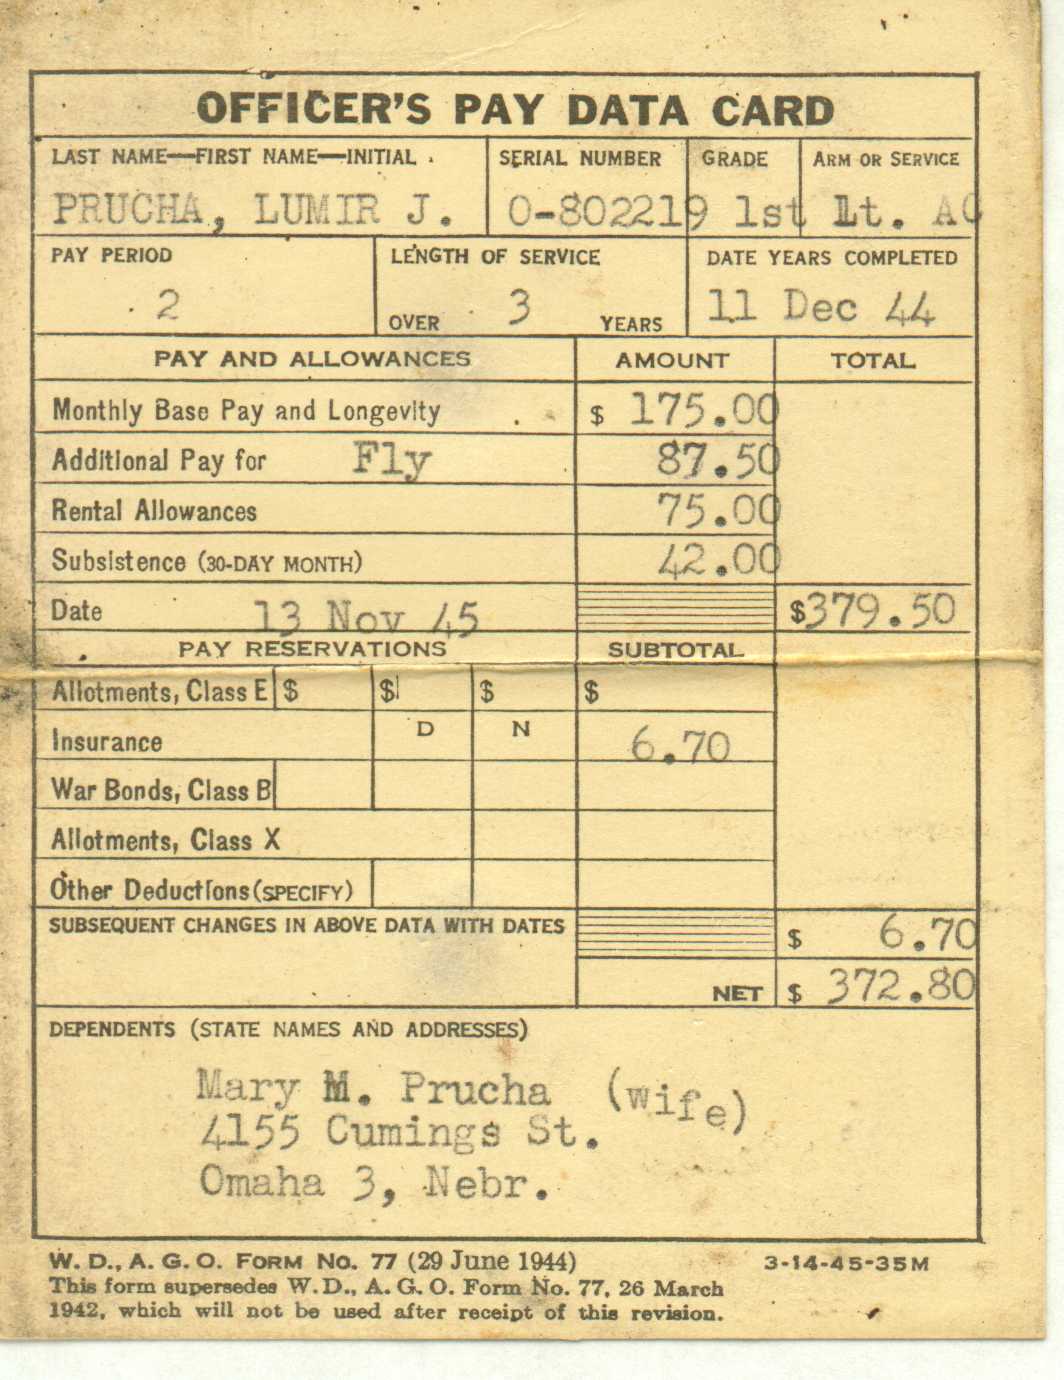 OFFICER'S PAY DATA CARD
LAST NAME—FIRST NAME—INITIAL SERIAL NUMBER GRADE ARM OR SERVICE
PRUCHA, LUMIR J. O-802219 1st Lt. AC
PAY PERIOD LENGTH OF SERVICE DATE YEARS COMPLETED
2 OVER 3 YEARS 11 Dec 44
PAY AND ALLOWANCES AMOUNT TOTAL
Monthly Base Pay and Longevity $ 175.00
Additional Pay for Fly 87.50
Rental Allowances 75.00
Subsistence (30-DAY MONTH) 42.00
Date 13 Nov 45 $379.50
PAY RESERVATIONS SUBTOTAL
Allotments, Class E $ $ $ $
Insurance D N 6.70
War Bonds, Class B
Allotments, Class X
Other Deductions (SPECIFY)
SUBSEQUENT CHANGES IN ABOVE DATA WITH DATES $ 6.70
NET $ 372.80
DEPENDENTS (STATE NAMES AND ADDRESSES)
Mary M. Prucha (wife)
4155 Cumings St.
Omaha 3, Nebr.
W. D., A. G. O. FORM NO. 77 (29 June 1944) 3-14-45-35M
This form supersedes W. D., A. G. O. Form No. 77, 26 March
1942, which will not be used after receipt of this revision.